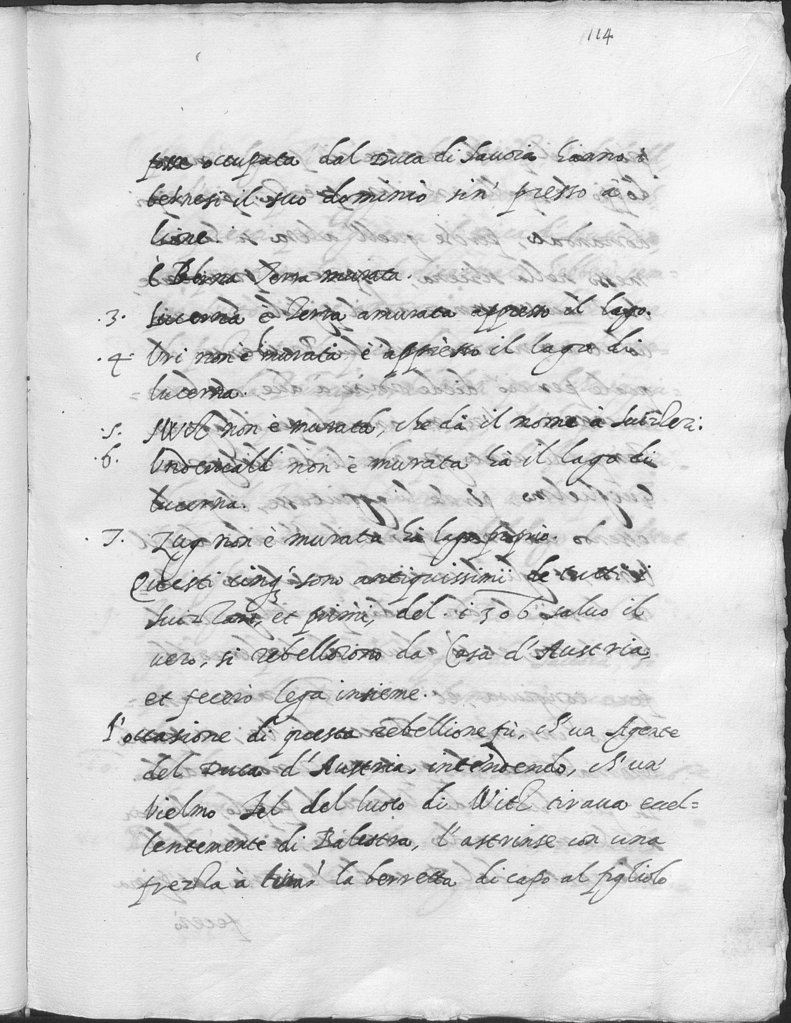 114
fosse occupata dal Duca di Savoia hanno i
bernesi il suo dominio sin' presso a
lione
è Berna Terra murata.
.3. Lucerna è Terra amurata appresso il lago.
.4. Uri non è murata è appresso il lago di
lucerna.
.5. Switz non è murata, che dà il nome à Suizzeri:
.6. Undervald non è murata hà il lago di
lucerna.
.7. Zug non è murata hà lago proprio.
Questi cinq3 sono antiquissimi de tutti i
Suizzari, et primi, del 1306 salvo il
vero, si rebellorono da Casa d'Austria,
et fecero lega insieme.
L'occasione di questa rebellione fù, ch'un Agente
del Duca d'Austria, intendendo, ch'un
Vielmo Tel del luoco di Witz tirava ecel=
lentemente di Balestra, l'astrinse con una
frezza à tirar' la berretta di capo al figliolo